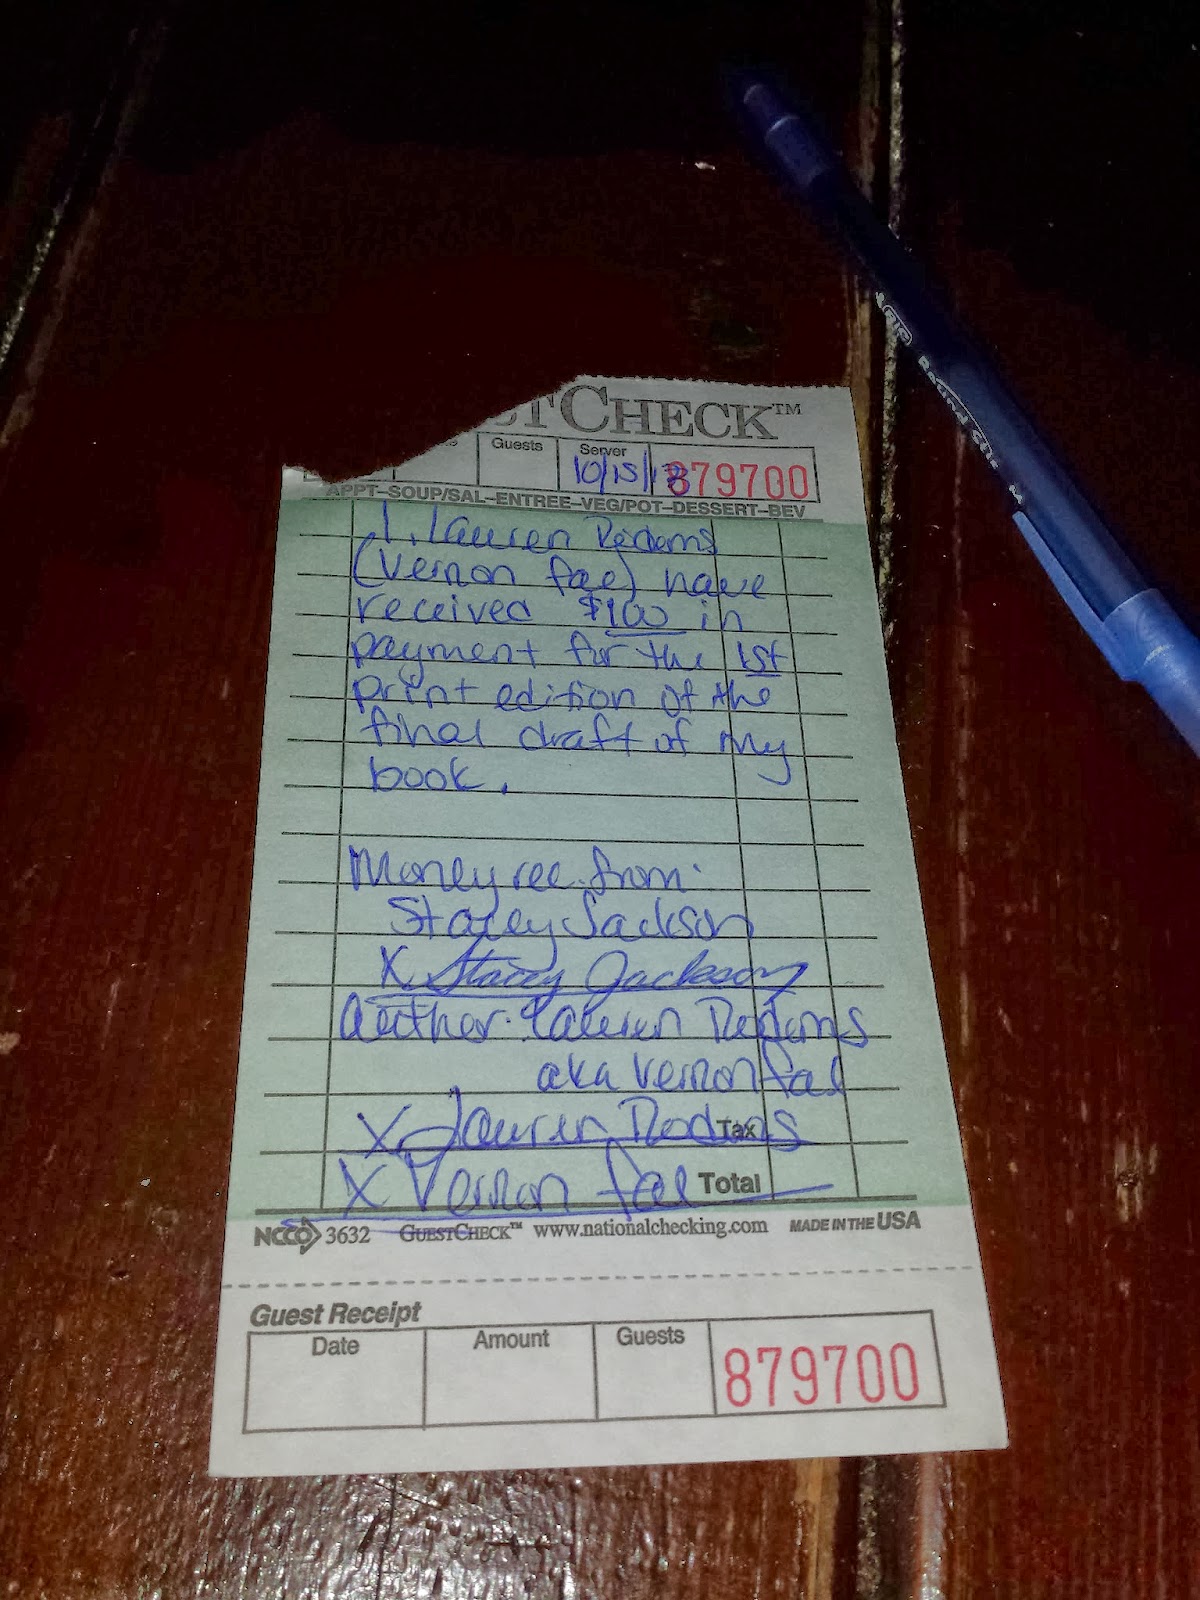 STCHECK™
Guests Server
10/15/13 879700
APPT-SOUP/SAL-ENTREE-VEG/POT-DESSERT-BEV
I, Lauren Redams
(Vernon fae) have
received $100 in
payment for the 1st
print edition of the
final draft of my
book.
Money rec. from:
Stacey Jackson
X Stacey Jackson
Author: Lauren Redams
aka Vernon fae
X Lauren Redams Tax
X Vernon fae Total
NCCO 3632 GUESTCHECK™ www.nationalchecking.com MADE IN THE USA
Guest Receipt
Date Amount Guests
879700
BIC Round Stic M